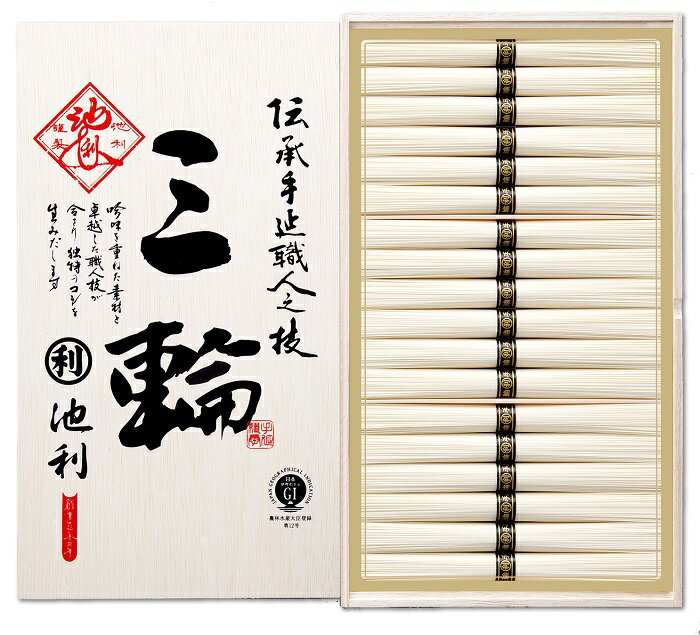 伝承手延職人之技
三輪
池利
謹製
池利
吟味を重ねた素材と
卓越した職人技が
合さり独特のコシを
生みだします
利
池利
手延
JAPAN GEOGRAPHICAL INDICATION
日本
GI
農林水産大臣登録
第12号